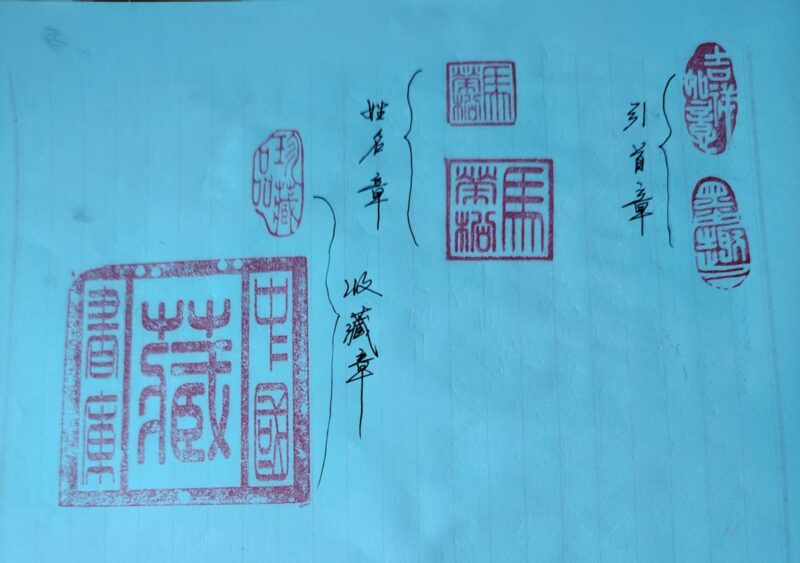 吉祥
如意
墨趣
引首章
馬
馬
姓名章
珍藏
品
收藏章
中國
藏
書庫